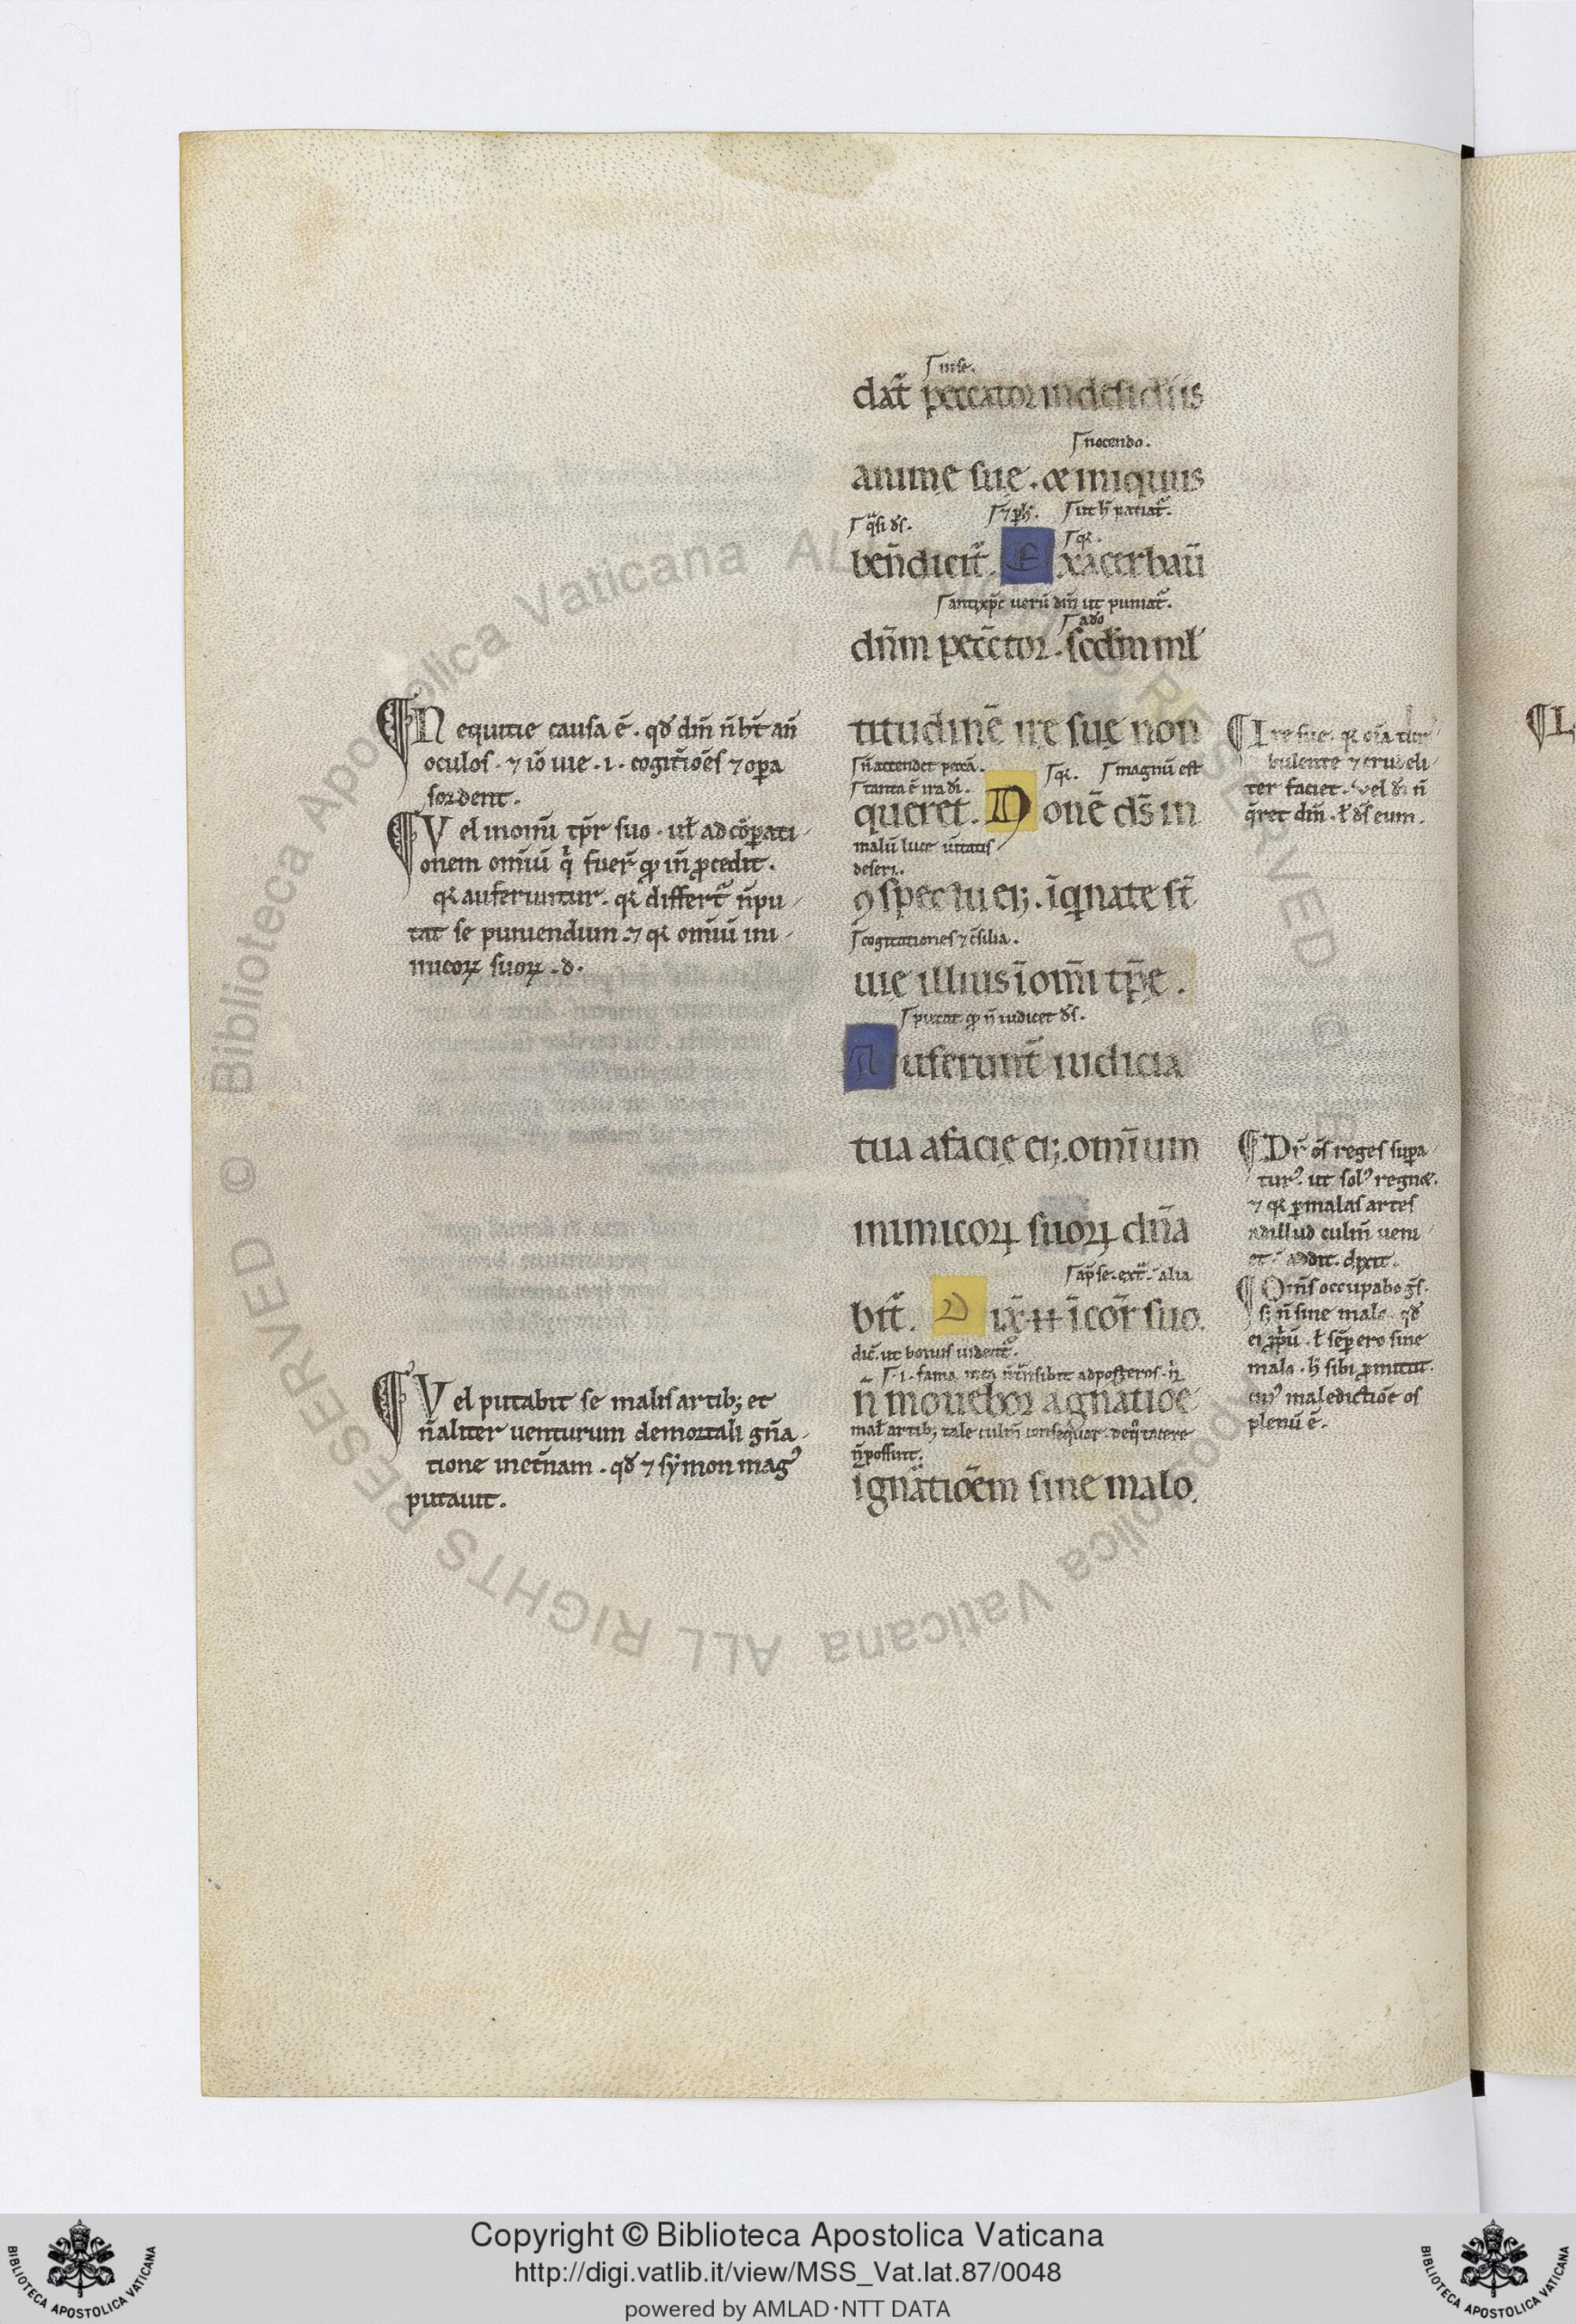 in se.
dat̃ peccator in desid̃iis
nocendo.
anime sue. & iniquus
q̃si dš. ⁊ ꝓh̃. ut h̃ patiat̃. qr.
beñdicit̃. Exacerbau̅
antixp̃c ueru̅ dm̃ ut puniat̃. ado
dñm pecc̃tor. scd̃m ml̃
titudinẽ ire sue non
ñ attendet peccã. qr. magnũ est
tanta ẽ ira di.
queret. Non ẽ dš in
malũ luce ũitatis
deseri.
ꝯspectu ei;. ĩqͥnate st̃
cogitationes ⁊ c̃silia.
uie illius ĩ om̃i tp̃e.
putat qͦ ñ iudicet dš.
Auferunt̃ iudicia
tua a facie ei;. omĩum
inimicoꝝ suoꝝ dñа
ap̃ se. ext̃. alia
bit̃. Dix̃ .н. ĩ cor̃ suo.
dic̃. ut bonus uideat̃.
.i. fama mea ñ t̃nsibit ad posteros. ñ
ñ mouebor a gñatiõe
mal̃ artib; tale culm̃ consequar. de qͦ tacere
ñ possunt.
ĩ gñatiõem sine malo.
Nequitie causa ẽ. qđ dm̃ ñ ht̃ añ
oculos. ⁊ iõ uie .i. cogit̃iões ⁊ opa
sordent.
Vel in omĩ tp̃r suo. ul̃ ad cõpati
onem omĩũ qͥ fuer̃ qͦ iñ ꝓcedit.
qr auferuntur. qr differt̃ ñ pu
tat se puniendum. ⁊ qr omĩũ ini
micoꝝ suoꝝ .d.
Vel putabit se malis artib; et
ñ aliter uenturum de mortali gñа
tione in et̃nam. qđ ⁊ sẏmon mag᾽
putauit.
Ire sue. qr oĩa tur
bulente ⁊ crudeli
ter faciet. uel di ñ
q̃ret dm̃. ł dš eum.
Dr̃ oš reges supa
tur᾽. ut sol᾽ regn&.
⁊ qr ꝑ malas artes
ad illud culm̃ ueni
et. addit. dixit.
Oms̃ occupabo gs̃.
s; ñ sine malo. qđ
ei ꝓp̃ũ. ł sẽp ero sine
malo. h̃ sibi ꝓmittit.
cui᾽ maledictiõe os
plenũ ẽ.
Copyright © Biblioteca Apostolica Vaticana
http://digi.vatlib.it/view/MSS_Vat.lat.87/0048
powered by AMLAD·NTT DATA
BIBLIOTECA APOSTOLICA VATICANA
BIBLIOTECA APOSTOLICA VATICANA
© Biblioteca Apostolica Vaticana ALL RIGHTS RESERVED
© Biblioteca Apostolica Vaticana ALL RIGHTS RESERVED